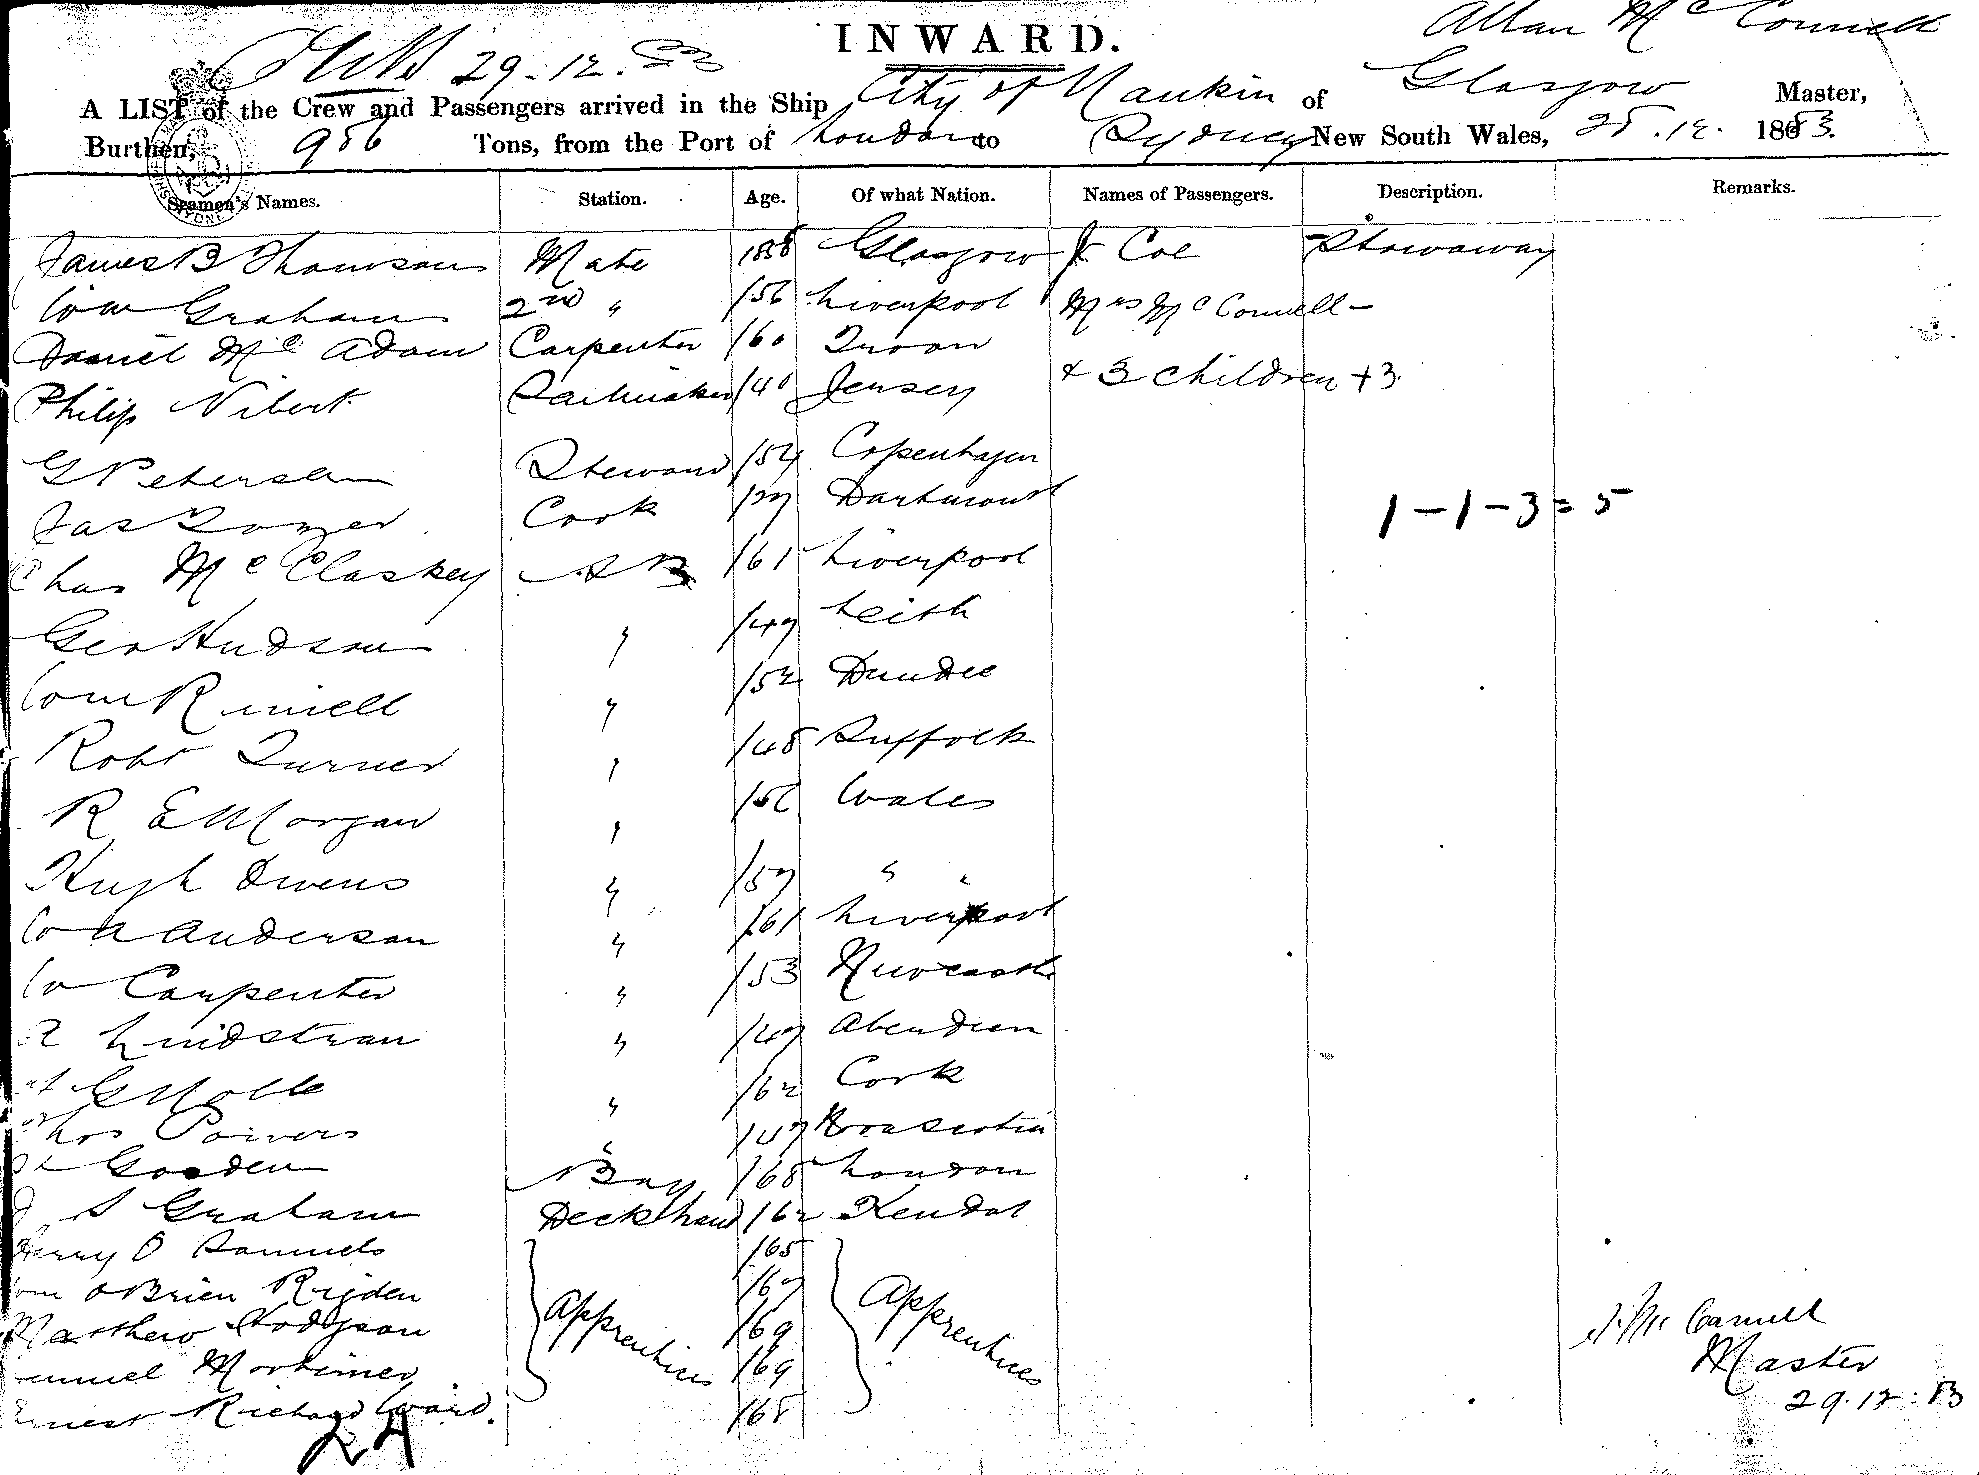 INWARD.
Allan Mc Connell
29.12.83
A LIST of the Crew and Passengers arrived in the Ship City of Nankin of Glasgow Master,
Burthen, 986 Tons, from the Port of London to Sydney New South Wales, 28.12. 1883.
Seamen's Names. Station. Age. Of what Nation. Names of Passengers. Description. Remarks.
James B Thomson Mate 1858 Glasgow J Coe Stowaway
Wm Graham 2nd " /56 Liverpool Mrs McConnell -
Daniel Mc Adam Carpenter /60 Troon
Philip Nibert Sailmaker /40 Jersey + 3 children + 3
G Petersen Steward /54 Copenhagen
Jas Tozer Cook /27 Dartmouth
1 - 1 - 3 = 5
Chas McClaskey AB /61 Liverpool
Geo Hudson " /47 Leith
Wm R " /52 Dundee
Robt Turner " /48 Suffolk
R E Morgan " /56 Wales
Hugh Owens " /57 " "
W A Anderson " /61 Liverpool
W Carpenter " /53 Newcastle
Lindstran " /47 Aberdeen
G /62 Cork
Thos Powers " /47 Nova Scotia
Gosden Boy /68 London
S Graham Deckhand /62 Kendal
Henry O Samuels /65
Wm O'Brien Rigden /67
Matthew Hodgson Apprentices /69 Apprentices
Samuel Mortimer /69
Ernest Richard Ward. /68
24
A. Mc Connell
Master
29.12.83